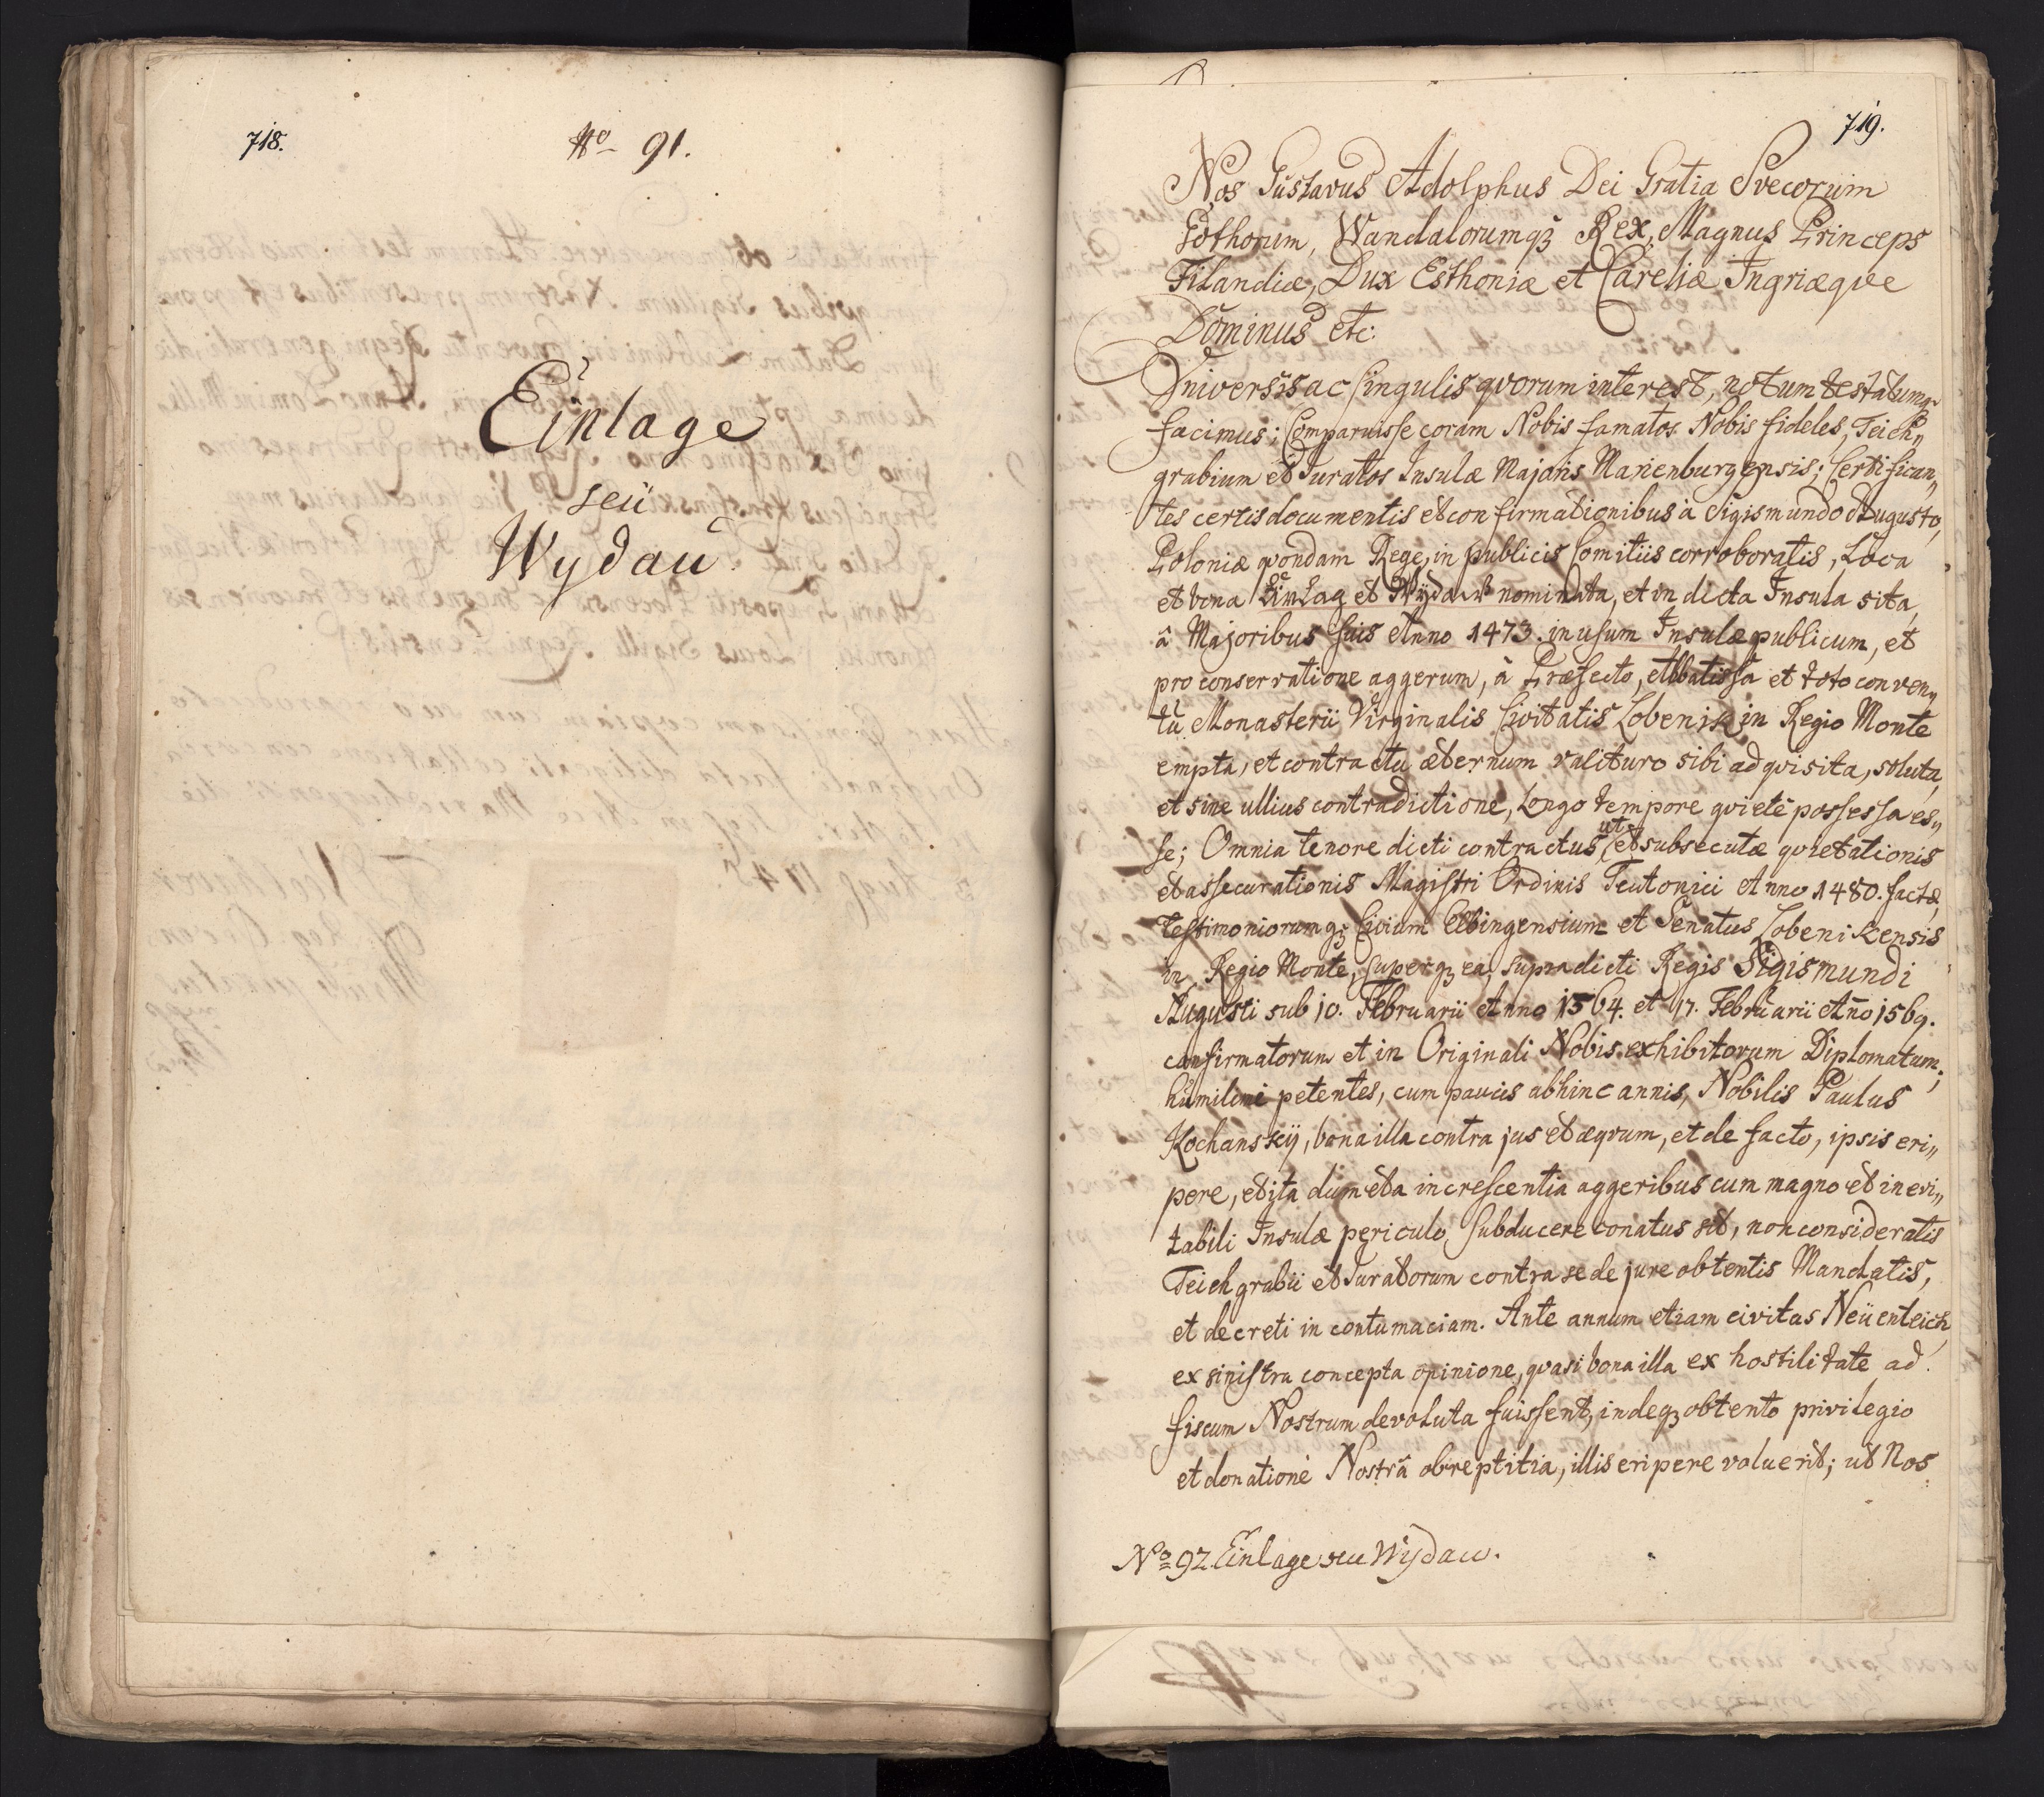 718.
No 91.
Einlage
seu
Wydau.
719.
Nos Gustavus Adolphus Dei Gratia Svecorum
Gothorum, Wandalorumq3 Rex, Magnus Princeps
Filandiæ, Dux Esthoniæ et Careliæ Ingriæqve
Dominus etc:
Vniversis ac singulis qvorum interest, notum testatumq
facimus: Comparuisse coram Nobis famatos Nobis fideles, Teich„
grabium et Juratos Insulæ Majoris Marienburgensis; Certifican„
tes certis documentis et confirmationibus à Sigismundo Augusto,
Poloniæ qvondam Rege, in publicis Comitiis corroboratis, Loca
et bona Einlag et Wydaw nominata, et in dicta Insula sita,
â Majoribus suis Anno 1473. in usum Insulæ publicum, et
pro conservatione aggerum, à Præfecto, Abbatissa et toto conven„
tu Monasterii Virginalis Civitatis Lobenik in Regio Monte
empta, et contractu æternum valituro sibi adqvisita, soluta,
et sine ullius contradictione, Longo tempore qviete possessa es„
se; Omnia tenore dicti contractus ut et subsecutæ qvietationis
et assecurationis Magistri Ordinis Teutonici Anno 1480. factæ,
Testimoniorumq3 Civium Elbingensium et Senatus Lobenikensis
in Regio Monte, superq3 ea, supradicti Regis Sigismundi
Augusti sub 10. Februarii Anno 1564. et 17. Februarii Año 1569.
confirmatorum et in Originali Nobis exhibitorum Diplomatum;
humilimè petentes, cum paucis abhinc annis, Nobilis Paulus
Kochanskÿ, bona illa contra jus et æqvum, et de facto, ipsis eri„
pere, et ita dumeta increscentia aggeribus cum magno et inevi„
tabili Insulæ periculo subducere conatus sit, non consideratis
Teichgrabii et Juratorum contra se de jure obtentis Mandatis,
et decreti in contumaciam. Ante annum etiam civitas Neüenteich
ex sinistra concepta opinione, qvasi bona illa ex hostilitate ad
fiscum Nostrum devoluta fuissent, indeq3 obtento privilegio
et donatione Nostrâ obreptitia, illis eripere voluerit; ut Nos
No 92. Einlage seu Wydaw.